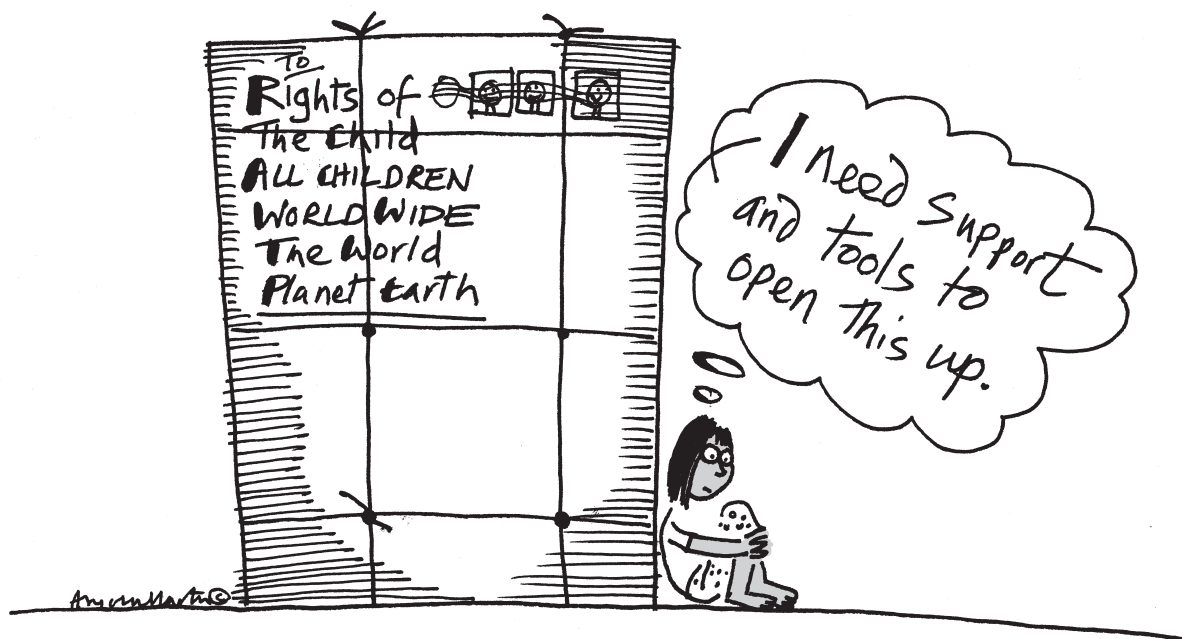 TO
Rights of
The Child
ALL CHILDREN
WORLD WIDE
The World
Planet Earth
I need support
and tools to
open this up.